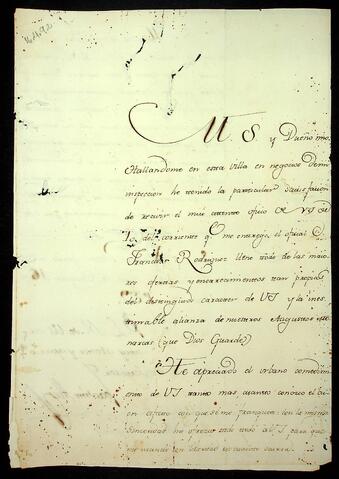 M. S. y Dueño mio
Hallandome en esta Villa en negocios de mi
inspeccion he tenido la particular satisfacion
de recivir el mui atento oficio de VS de
10 del corriente q.e me entregó el oficial D.
Francisco Rodriguez lleno todo de las maio
res ofertas y encarecimientos tan propias
del distinguido caracter de VS y la ines
timable alianza de nuestros Augustos Mo
narcas (que Dios Guarde)
He apreciado el urbano comedimi
ento de VS tanto mas cuanto conozco el
afecto con que se me franquea: con la misma
sinceridad he ofrezco todo a VS para que
me mande con libertad en cuanto